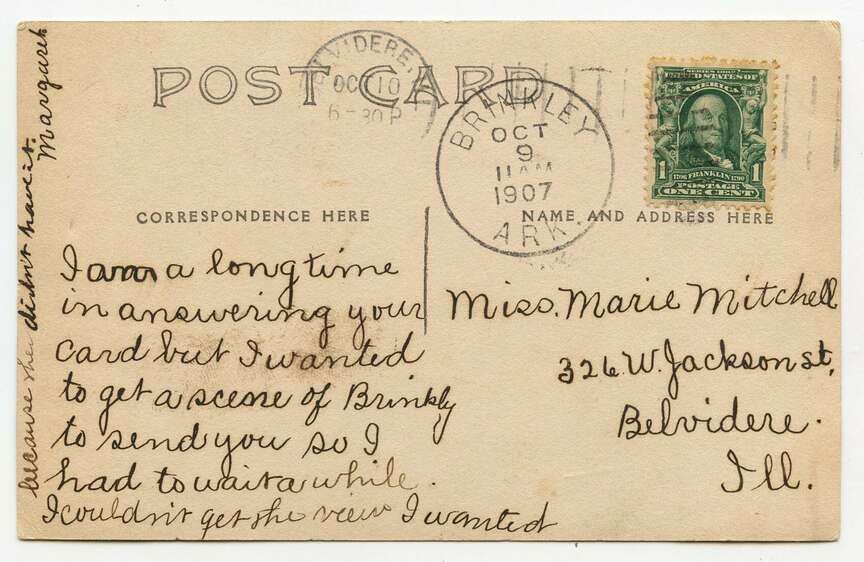 POST CARD
BELVIDERE
OCT 10
6-30 P
BRINKLEY
OCT
9
11 AM
1907
ARK.
SERIES 1902
UNITED STATES OF
AMERICA
1 1
1706 FRANKLIN 1790
POSTAGE
ONE CENT
CORRESPONDENCE HERE
NAME AND ADDRESS HERE
I am a long time
in answering your
card but I wanted
to get a scene of Brinkly
to send you so I
had to wait a while.
I couldn't get the view I wanted
because she didn't have it.
Margaret
Miss. Marie Mitchell
326 W. Jackson st,
Belvidere.
Ill.